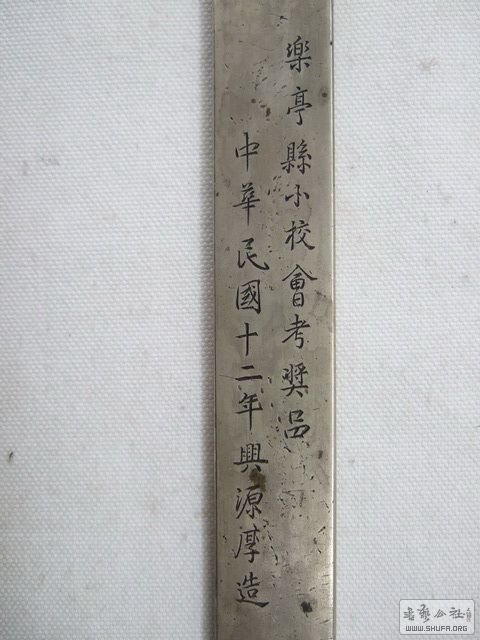 樂亭縣小校會考獎品
中華民國十二年興源厚造
WWW.SHUFA.ORG